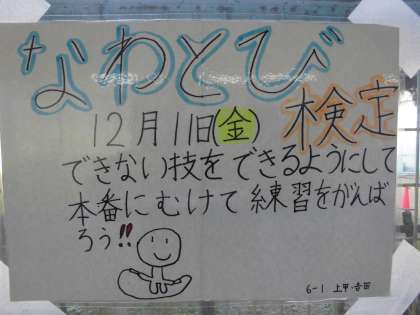 なわとび
検定
12月11日(金)
できない技をできるようにして
本番にむけて練習をがんば
ろう!!
6-1 上甲・吉田